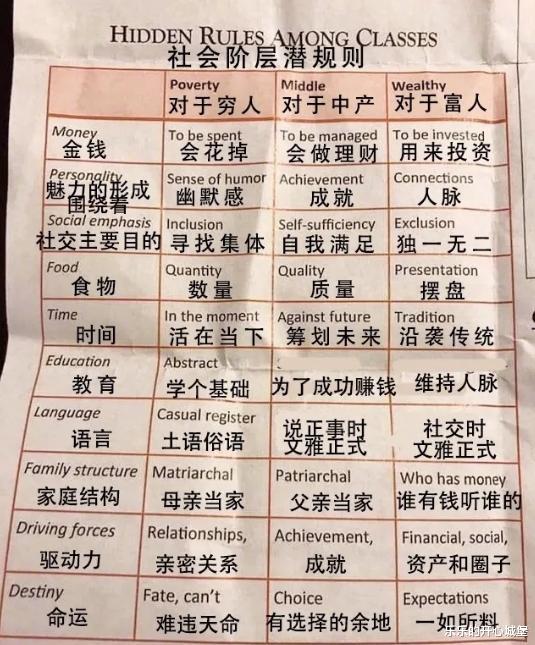 HIDDEN RULES AMONG CLASSES
社会阶层潜规则
Poverty Middle Wealthy
对于穷人 对于中产 对于富人
Money To be spent To be managed To be invested
金钱 会花掉 会做理财 用来投资
Personality Sense of humor Achievement Connections
魅力的形成 幽默感 成就 人脉
围绕着
Social emphasis Inclusion Self-sufficiency Exclusion
社交主要目的 寻找集体 自我满足 独一无二
Food Quantity Quality Presentation
食物 数量 质量 摆盘
Time In the moment Against future Tradition
时间 活在当下 筹划未来 沿袭传统
Education Abstract
教育 学个基础 为了成功赚钱 维持人脉
Language Casual register 说正事时 社交时
语言 土语俗语 文雅正式 文雅正式
Family structure Matriarchal Patriarchal Who has money
家庭结构 母亲当家 父亲当家 谁有钱听谁的
Driving forces Relationships, Achievement, Financial, social,
驱动力 亲密关系 成就 资产和圈子
Destiny Fate, can't Choice Expectations
命运 难违天命 有选择的余地 一如所料
乐乐的开心城堡